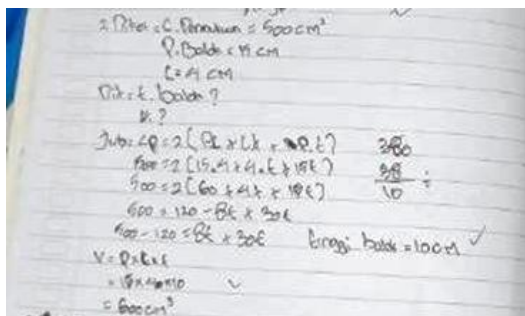 2. Diket = L. Permukaan = 500 cm²
P. Balok = 15 cm
L = 4 cm
Dit = t. balok ?
V. ?
Jwb = LP = 2 (PL + Lt + P.t)
500 = 2 (15.4 + 4.t + 15t)
500 = 2 (60 + 4t + 15t)
500 = 120 - 8t + 30t
500 - 120 = 8t + 30t
380
38 :
10
tinggi balok = 10 cm
V = P x L x t
= 15 x 4 x 10
= 600 cm³